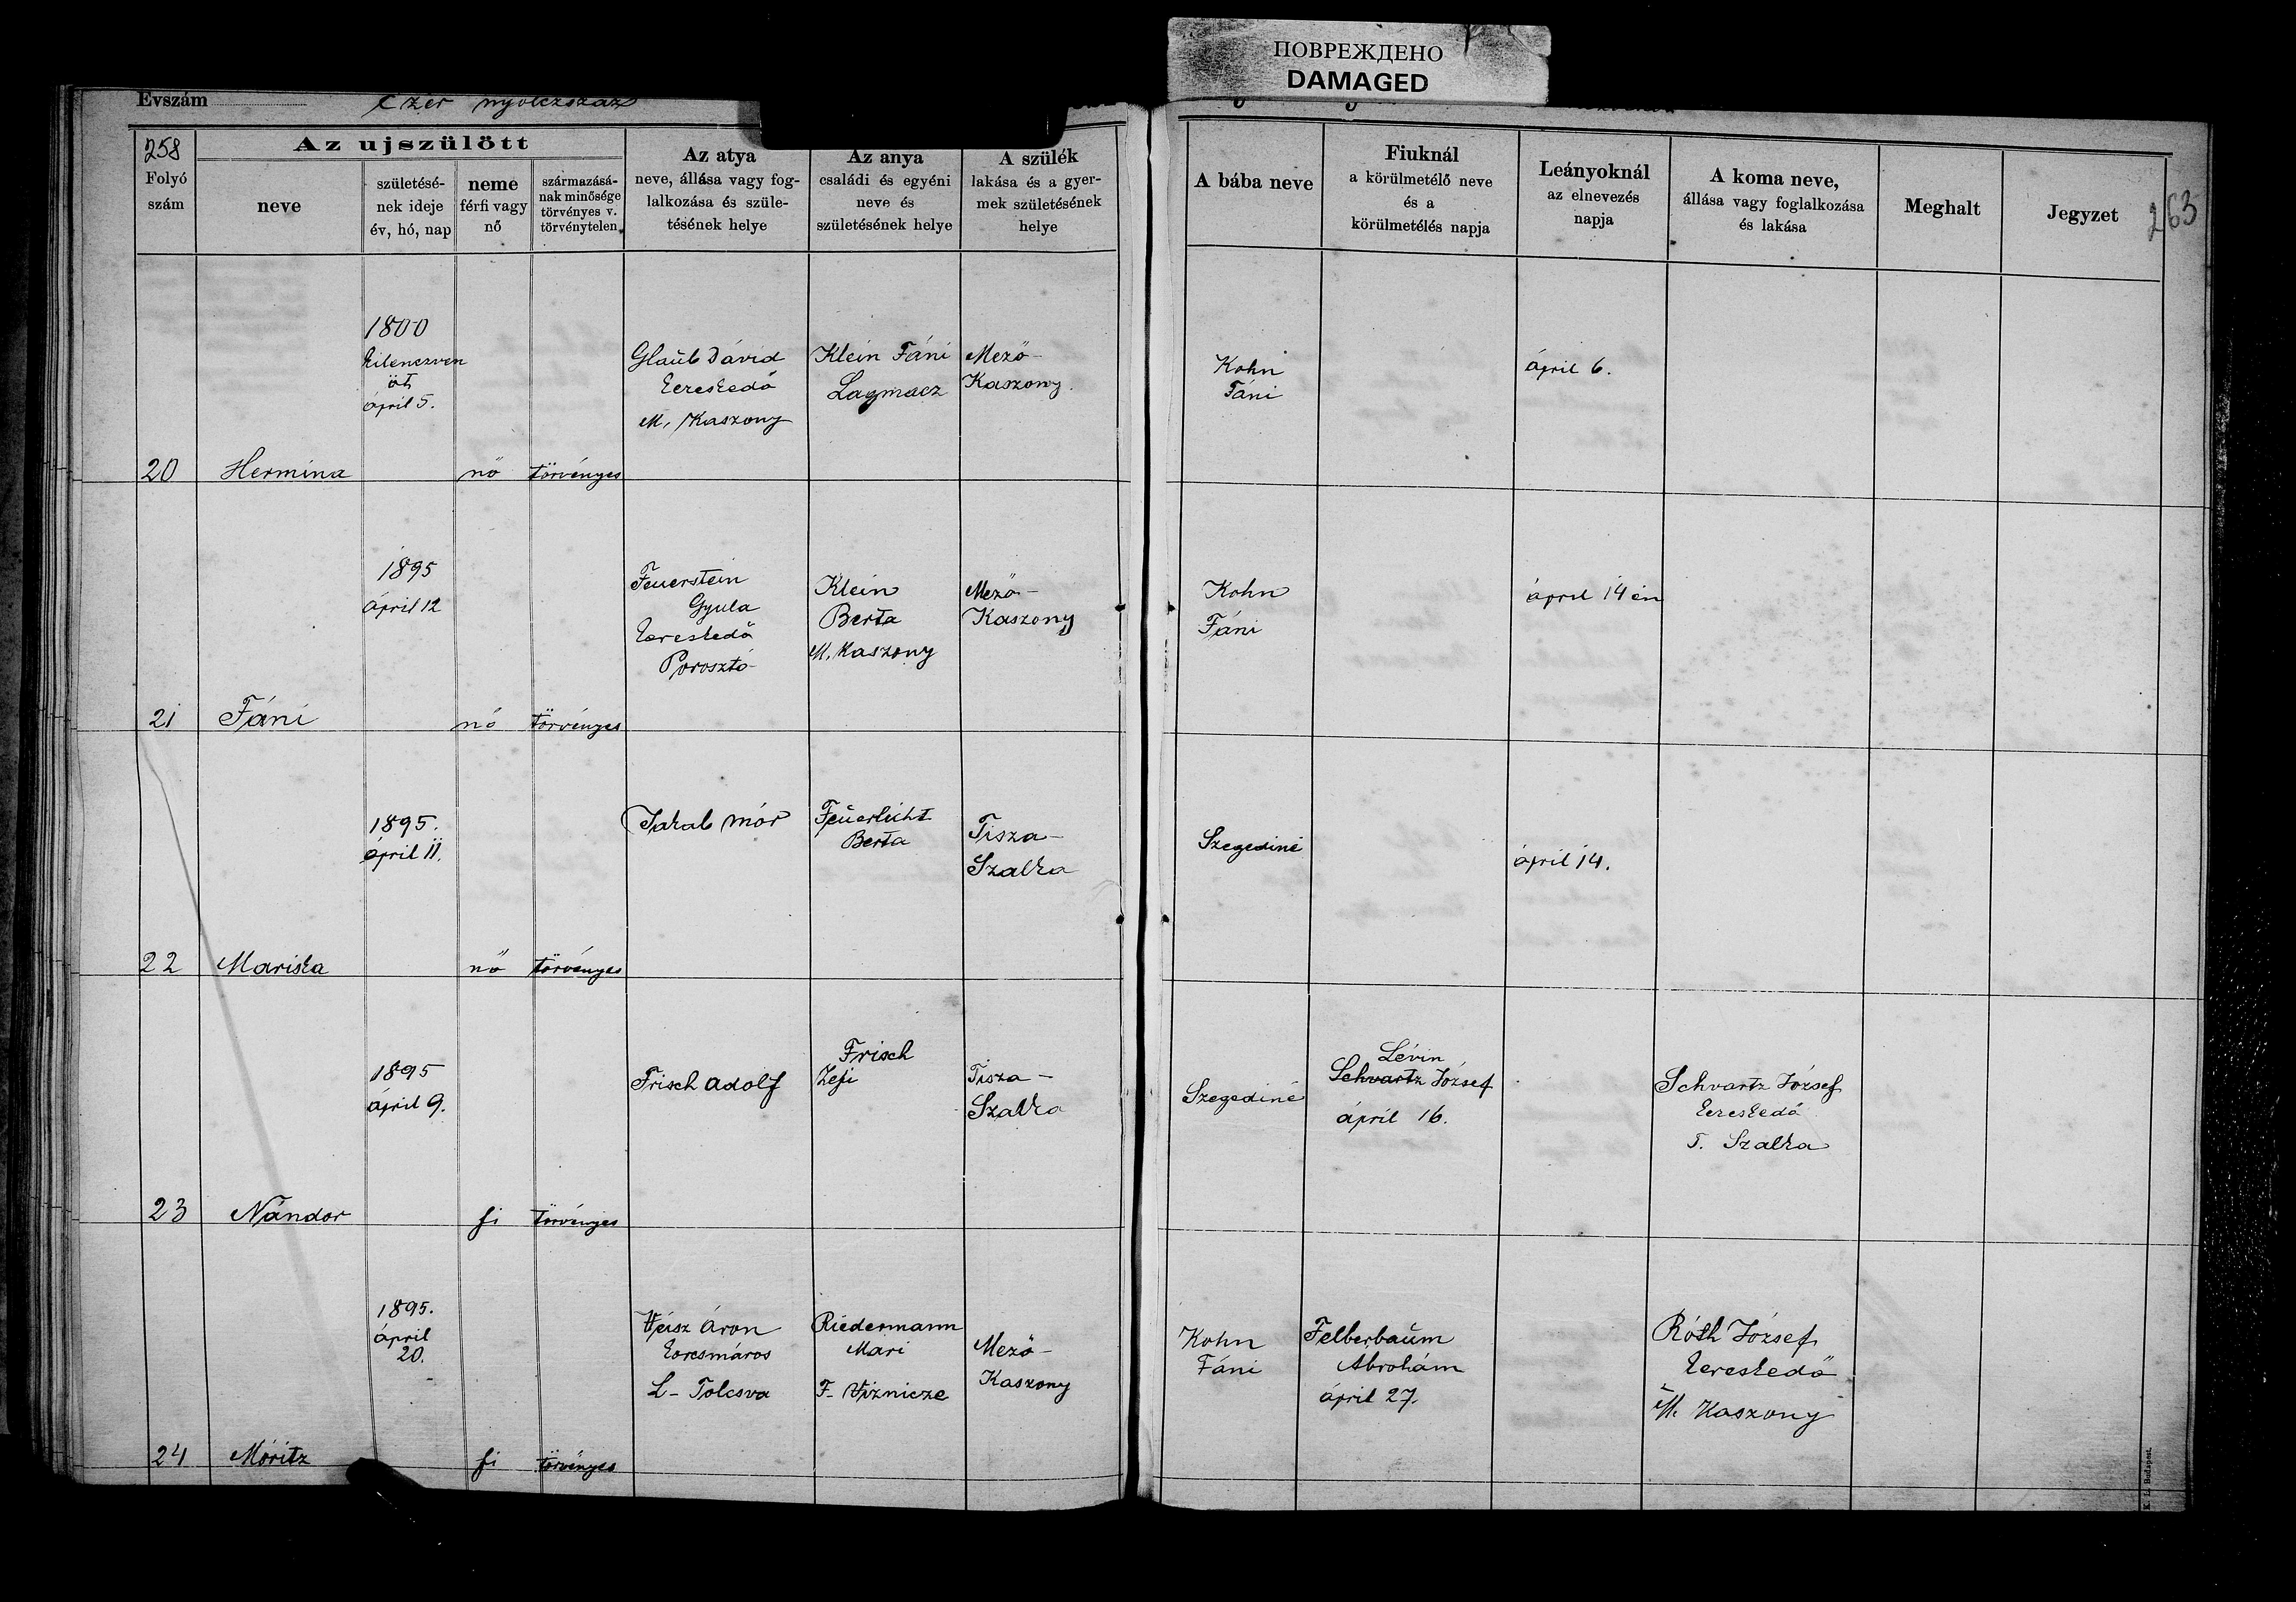 ПОВРЕЖДЕНО
DAMAGED
Evszám Ezer nyolczszáz
258
263
Folyó szám
Az ujszülött
neve
születésé-
nek ideje
év, hó, nap
neme
férfi vagy
nő
származásá-
nak minősége
törvényes v.
törvénytelen
Az atya
neve, állása vagy fog-
lalkozása és szüle-
tésének helye
Az anya
családi és egyéni
neve és
születésének helye
A szülék
lakása és a gyer-
mek születésének
helye
A bába neve
Fiuknál
a körülmetélő neve
és a
körülmetélés napja
Leányoknál
az elnevezés
napja
A koma neve,
állása vagy foglalkozása
és lakása
Meghalt
Jegyzet
20
Hermina
1800
kilenczven
öt
ápril 5.
nő
törvényes
Glaub Dávid
kereskedő
M. Kaszony
Klein Fáni
Lagmacz
Mező-
Kaszony.
Kohn
Fáni
ápril 6.
21
Fáni
1895
ápril 12
nő
törvényes
Feuerstein
Gyula
kereskedő
Porosztó
Klein
Berta
M. Kaszony
Mező-
Kaszony
Kohn
Fáni
ápril 14 én
22
Mariska
1895.
ápril 11.
nő
törvényes
Jakab Mór
Feuerlicht
Berta
Tisza-
Szalka
Szegediné
ápril 14.
23
Nándor
1895
ápril 9.
fi
törvényes
Frisch Adolf
Frisch
Zeji
Tisza-
Szalka
Szegediné
Lévin
Schvartz József
ápril 16.
Schvartz József
kereskedő
T. Szalka
24
Móritz
1895.
ápril
20.
fi
törvényes
Veisz Áron
korcsmáros
L- Tolcsva
Riedermann
Mari
F- Viznicze
Mező-
Kaszony
Kohn
Fáni
Felberbaum
Ábrohám
ápril 27.
Róth József
kereskedő
M. Kaszony
K. L. Budapest.